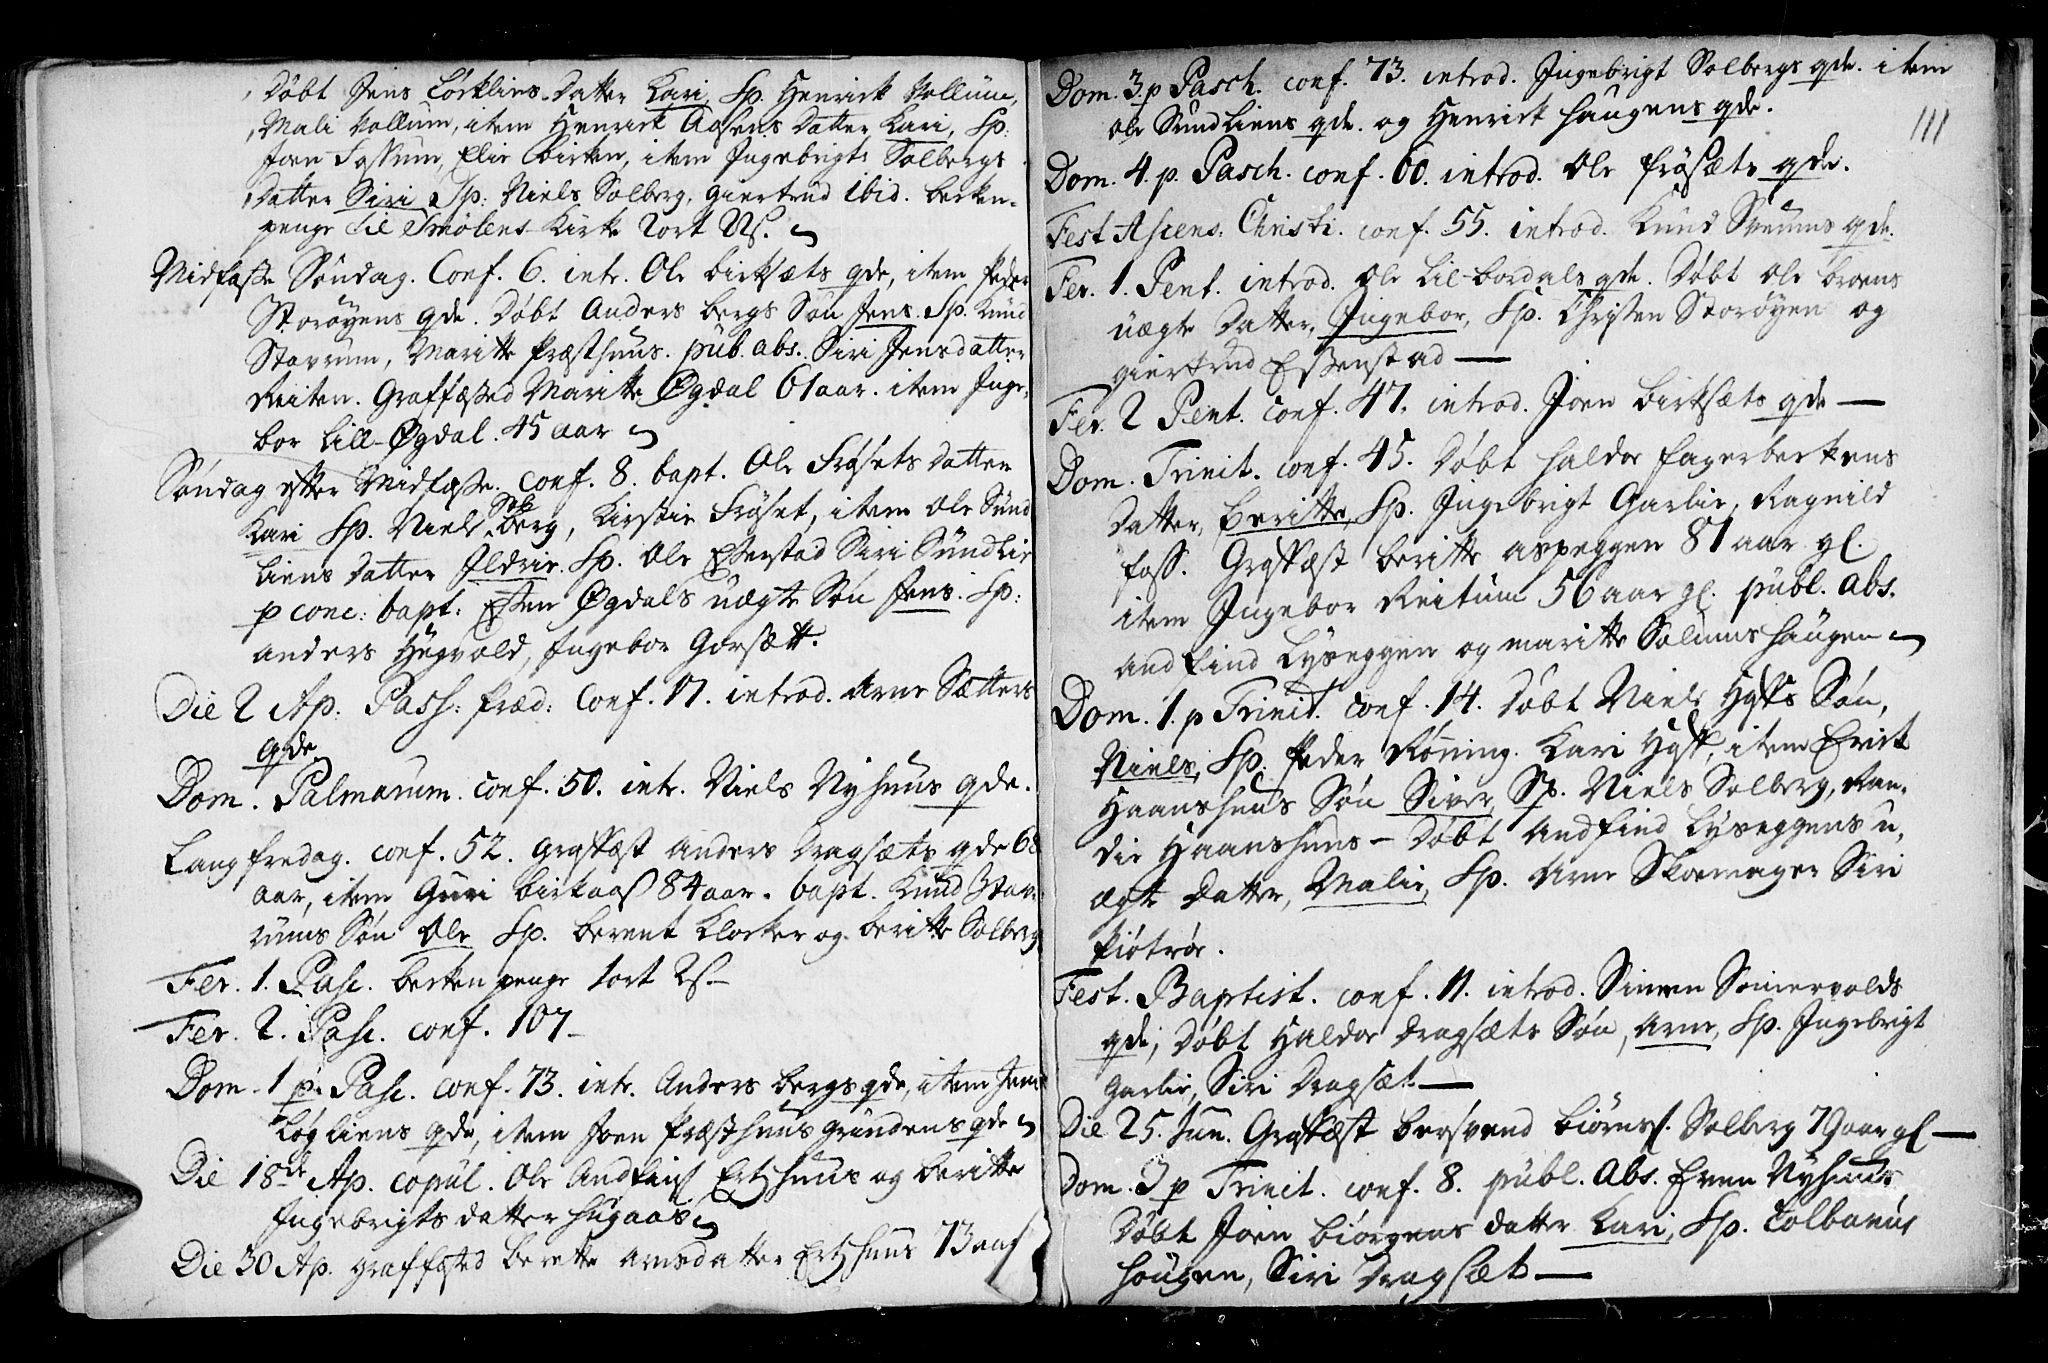 Døbt Jens Løcklins Datter Kari, Sp. Henrick Vollum,
Mali Vollum, item Henrick Aasens Datter Kari, Sp:
Joen Fossum, Elie Birken, item Ingebrigts Solbergs
Datter Siri Sp: Niels Solberg, Giertrud ibid. becken-
penge til Smølens Kirke 2ort
Midfaste Søndag. Conf. 6. intr. Ole Birksæts qde, item Peder
Storøyens qde. Døbt Anders Bergs Søn Jens. Sp. Knud
Stavrum, Maritte Præsthuus. pub. abs. Siri Jensdatter
Reiten. Graffæsted Maritte Øgdal 61 aar. item Inge-
bor Lill-Øgdal. 45 aar
Søndag efter Midfaste. conf. 8. bapt. Ole Frøsets Datter
Kari Sp. Niels Solberg, Kirstie Frøset, item Ole Sund
Liens Datter Ildrie. Sp. Ole Estenstad Siri Sundlie
p conc: bapt: Esten Øgdals uægte Søn Jens. Sp:
Anders Hegvold, Ingebor Gorsætt.
Die 2 Ap: Pass: Præd: Conf. 17. introd. Arne Sætters
qde
Dom. Palmarum. conf. 50. intr. Niels Nyhuus qde.
Langfredag. conf. 52. Grafkæst Anders Dragsæts qde 68
aar, item Guri Birkaas 84 aar. bapt. Knud Stav-
rums Søn Ole Sp. Berent Klocker og Beritte Solberg
Fer. 1. Pasc. Becken penge 1ort 2s.
Fer. 2. Pasc. conf. 107
Dom. 1 p. Pasc. conf. 73. intr. Anders Bergs qde, item Jens
Løgliens qde, item Joen Præsthuus grindens qde
Die 18de Ap. copul. Ole Andfins Ertzhuus og Beritte
Ingebrigts datter Hugaas
Die 30 Ap. graffæsted Berette Arnsdatter Ertzhuus 73 aar
111
Dom. 3. p Pasch. conf. 73. introd. Ingebrigt Solbergs qde. item
Ole Sundliens qde. og Henrick Haugens qde.
Dom. 4. p. Pasch. conf. 60. introd. Ole Frøsæts qde.
Fest Ascens. Christi. conf. 55. introd. Knud Steums qde.
Fer. 1. Pent. introd. Ole Lil-Bordals qde. Døbt Ole Broens
uægte Datter, Ingebor, Sp. Christen Storøyen og
Giertrud Estenstad
Fer. 2 Pent. conf. 47. introd. Joen Birksæts qde
Dom. Trinit. conf. 45. Døbt Haldor Fagerbeckens
Datter, Beritte, Sp. Ingebrigt Garlie, Ragnild
Foss. Grafkæst Beritte Aspeggen 81 aar gl.
item Ingebor Reitum 56 aar gl. publ. abs.
Andfind Lyseggen og Maritte Solums haugen
Dom. 1. p Trinit. conf. 14. Døbt Niels Hgsts Søn,
Niels, Sp. Peder Røning. Kari Hgst, item Erick
Haanshuus Søn Siver, Sp. Niels Solberg, Ran-
die Haanshuus - Døbt Andfind Lyseggens u-
ægte Datter, Malie, Sp. Arne Skoemager Siri
Kiøtrøe.
Fest. Baptist. conf. 11. introd. Simen Somervolds
qde, Døbt Haldor Dragsæts Søn, Arne, Sp. Ingebrigt
Garlie, Siri Dragsæt
Die 25. Jun. Grafkæst Bersvend Biørns. Solberg 79 aar gl
Dom. 3 p Trinit. conf. 8. publ. Abs. Even Nyhuus
Døbt Joen Biørgens datter Kari, Sp. Colbanus
Hougen, Siri Dragsæt